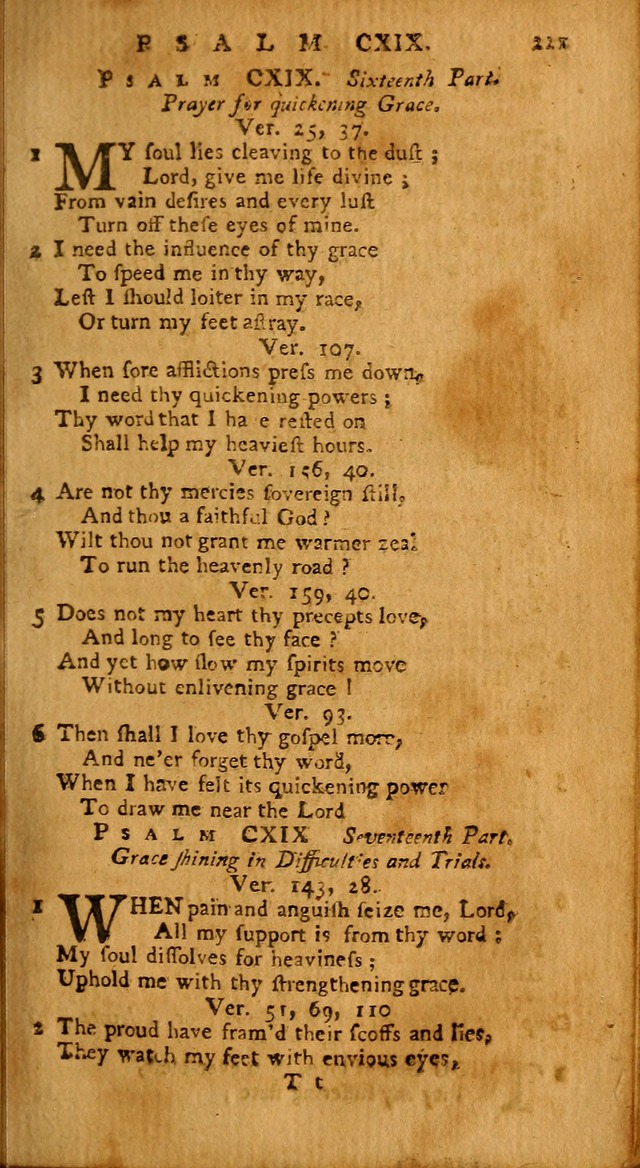 PSALM CXIX. 221
PSALM CXIX. Sixteenth Part.
Prayer for quickening Grace.
Ver. 25, 37.
1 MY ſoul lies cleaving to the duſt ;
Lord, give me life divine ;
From vain deſires and every luſt
Turn off theſe eyes of mine.
2 I need the influence of thy grace
To ſpeed me in thy way,
Leſt I ſhould loiter in my race,
Or turn my feet aſtray.
Ver. 107.
3 When ſore afflictions preſs me down,
I need thy quickening powers ;
Thy word that I ha e reſted on
Shall help my heavieſt hours.
Ver. 156, 40.
4 Are not thy mercies ſovereign ſtill,
And thou a faithful God ?
Wilt thou not grant me warmer zeal
To run the heavenly road ?
Ver. 159, 40.
5 Does not my heart thy precepts love,
And long to ſee thy face ?
And yet how ſlow my ſpirits move
Without enlivening grace !
Ver. 93.
6 Then ſhall I love thy goſpel more,
And ne'er forget thy word,
When I have felt its quickening power
To draw me near the Lord
PSALM CXIX Seventeenth Part.
Grace ſhining in Difficulties and Trials.
Ver. 143, 28.
1 WHEN pain and anguiſh ſeize me, Lord,
All my ſupport is from thy word ;
My ſoul diſſolves for heavineſs ;
Uphold me with thy ſtrengthening grace.
Ver. 51, 69, 110
2 The proud have fram'd their ſcoffs and lies,
They watch my feet with envious eyes,
T t